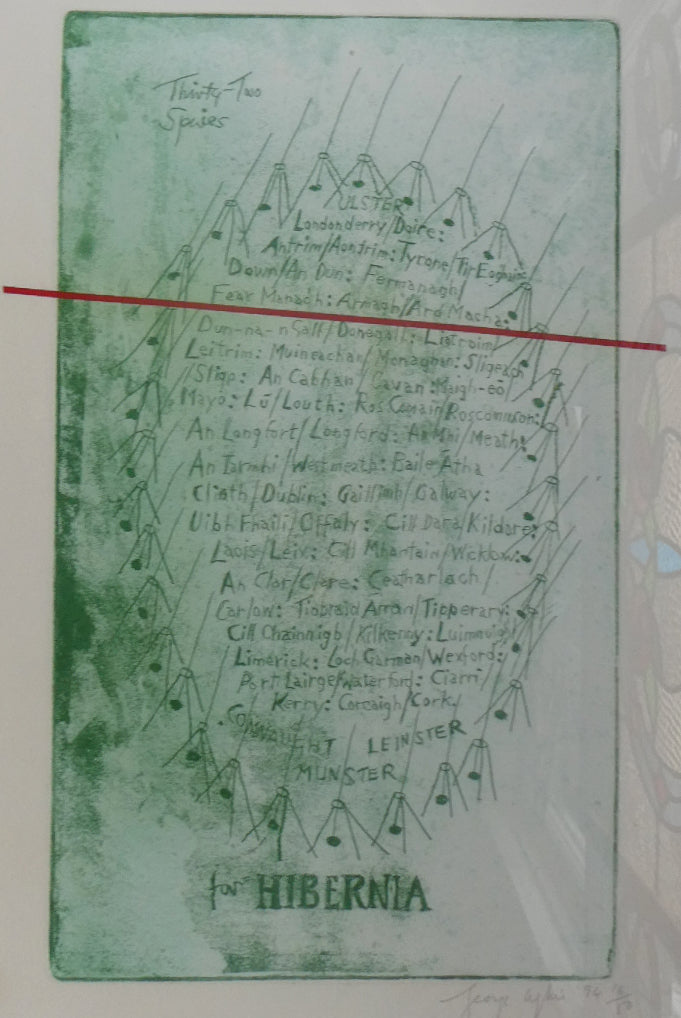 Thirty-Two
Spires
ULSTER
Londonderry/Doire:
Antrim/Aontrim: Tyrone/Tir Eoghain:
Down/An Dun: Fermanagh/
Fear Manach: Armagh/Ard Macha:
Dun-na-nGall/Donegall: Liatroim/
Leitrim: Muineachan/Monaghan: Sligeach
/Sligo: An Cabhan/Cavan: Maigh-eo/
Mayo: Lū/Louth: Ros Comain/Roscommon:
An Longfort/Longford: An Mhi/Meath:
An Iarmhi/Westmeath: Baile Atha
Cliath/Dublin: Gaillimh/Galway:
Uibh Fhaili/Offaly: Cill Dara/Kildare:
Laois/Leix: Cill Mhantain/Wicklow:
An Clar/Clare: Ceatharlach/
Carlow: Tiobraid Arran/Tipperary:
Cill Chainnigh/Kilkenny: Luimnigh/
Limerick: Loch Garman/Wexford:
Port Lairge/Waterford: Ciarri/
Kerry: Corcaigh/Cork.
CONNAUGHT LEINSTER
MUNSTER
for HIBERNIA
George '94